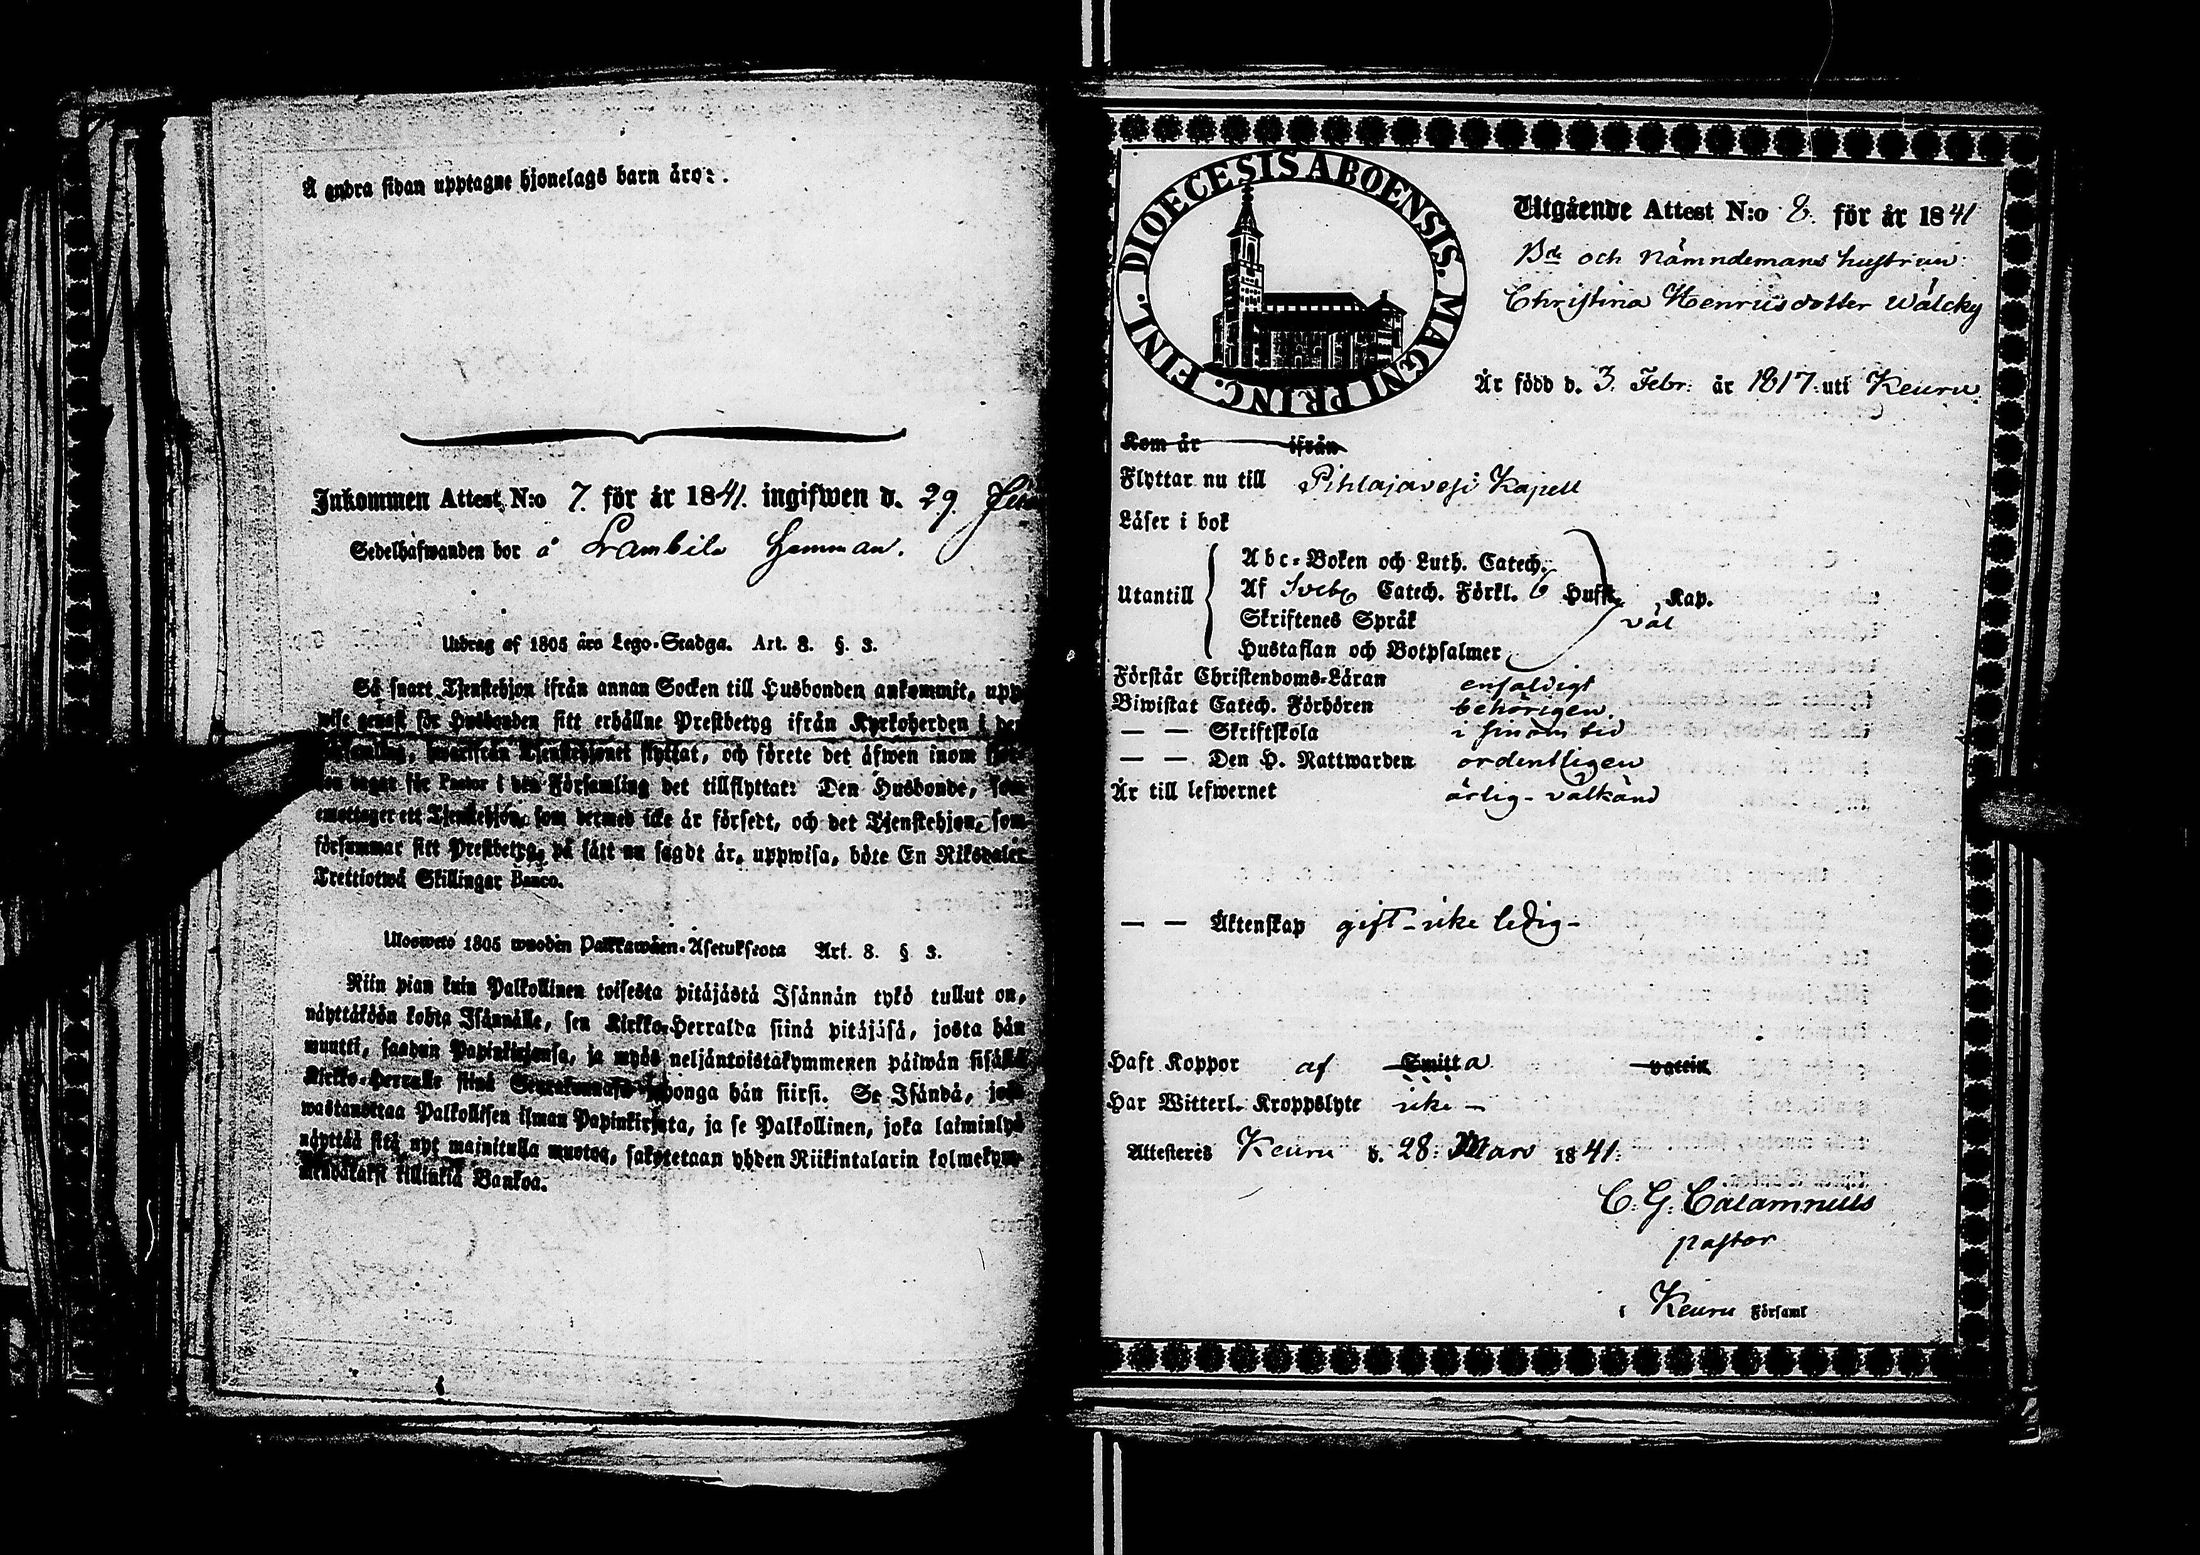 Å andra sidan upptagne hjonelags barn äro:
Inkommen Attest N:o 7. för år 1841. ingifwen d. 29.
Sedelhafwanden bor å Lambila hemman.
Utdrag af 1805 års Lego-Stadga. Art. 8. §. 3.
Så snart Tjenstehjon ifrån annan Socken till Husbonden ankommit, upp-
wise genast för Husbonden sitt erhållne Prestbetyg ifrån Kyrkoherden i den
Församling, hwarifrån Tjenstehjonet flyttat, och förete det äfwen inom
dagar för Pastor i den Församling det tillflyttat: Den Husbonde, som
emottager ett Tjenstehjon, som dermed icke är försedt, och det Tjenstehjon, som
försummar sitt Prestbetyg, på sätt nu sagdt är, uppwisa, böte En Riksdaler
Trettiotwå Skillingar Banco.
Ulosweto 1805 wuoden Palkkawäen-Asetuksesta Art. 8. § 3.
Niin pian kuin Palkollinen toisesta pitäjästä Isännän tykö tullut on,
näyttäköön kohta Isännälle, sen Kirkko-Herralda siinä pitäjäsä, josta hän
muutti, saadun Papinkirjansa, ja myös neljäntoistakymmenen päiwän sisällä
Kirkko-Herralle siinä Seurakunnasa jhonga hän siirsi. Se Isändä, joka
wastanottaa Palkollisen ilman Papinkirjata, ja se Palkollinen, joka laiminlyö
näyttää sitä nyt mainitulla muotoa, sakotetaan yhden Riikintalarin kolmekym-
mendäkaksi killinkiä Bankoa.
DIOECESIS ABOENSIS. MAGNI PRINC. FINL.
Utgående Attest N:o 8. för år 1841
Bde och Nämndemans hustrun
Christina Henricsdotter Wälcky
Är född d. 3. Febr: år 1817: uti Keuru.
Kom år ifrån
Flyttar nu till Pihlajavesi Kapell
Läser i bok
Abc-Boken och Luth. Catech.
Utantill Af Sveb Catech. Förkl. 6 Hufst. Kap.
Skriftenes Språk väl
Hustaflan och Botpsalmer
Förstår Christendoms-Läran enfaldigt
Biwistat Catech. Förhören behörigen.
— — Skriftskola i sinom tid
— — Den H. Nattwarden ordentligen
Är till lefwernet ärlig - välkänd
— — Äktenskap gift - icke ledig -
Haft Koppor af Smitta vaccin
Har Witterl. Kroppslyte icke -
Attesteres Keuru d. 28: Mars 1841:
C. G. Calamnius
pastor
i Keuru Församl